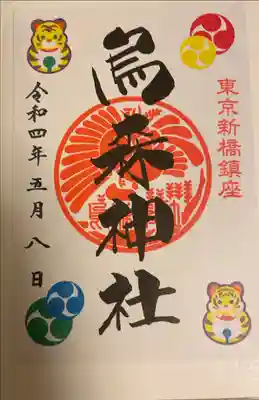 東京新橋鎮座
烏森神社
令和四年五月八日